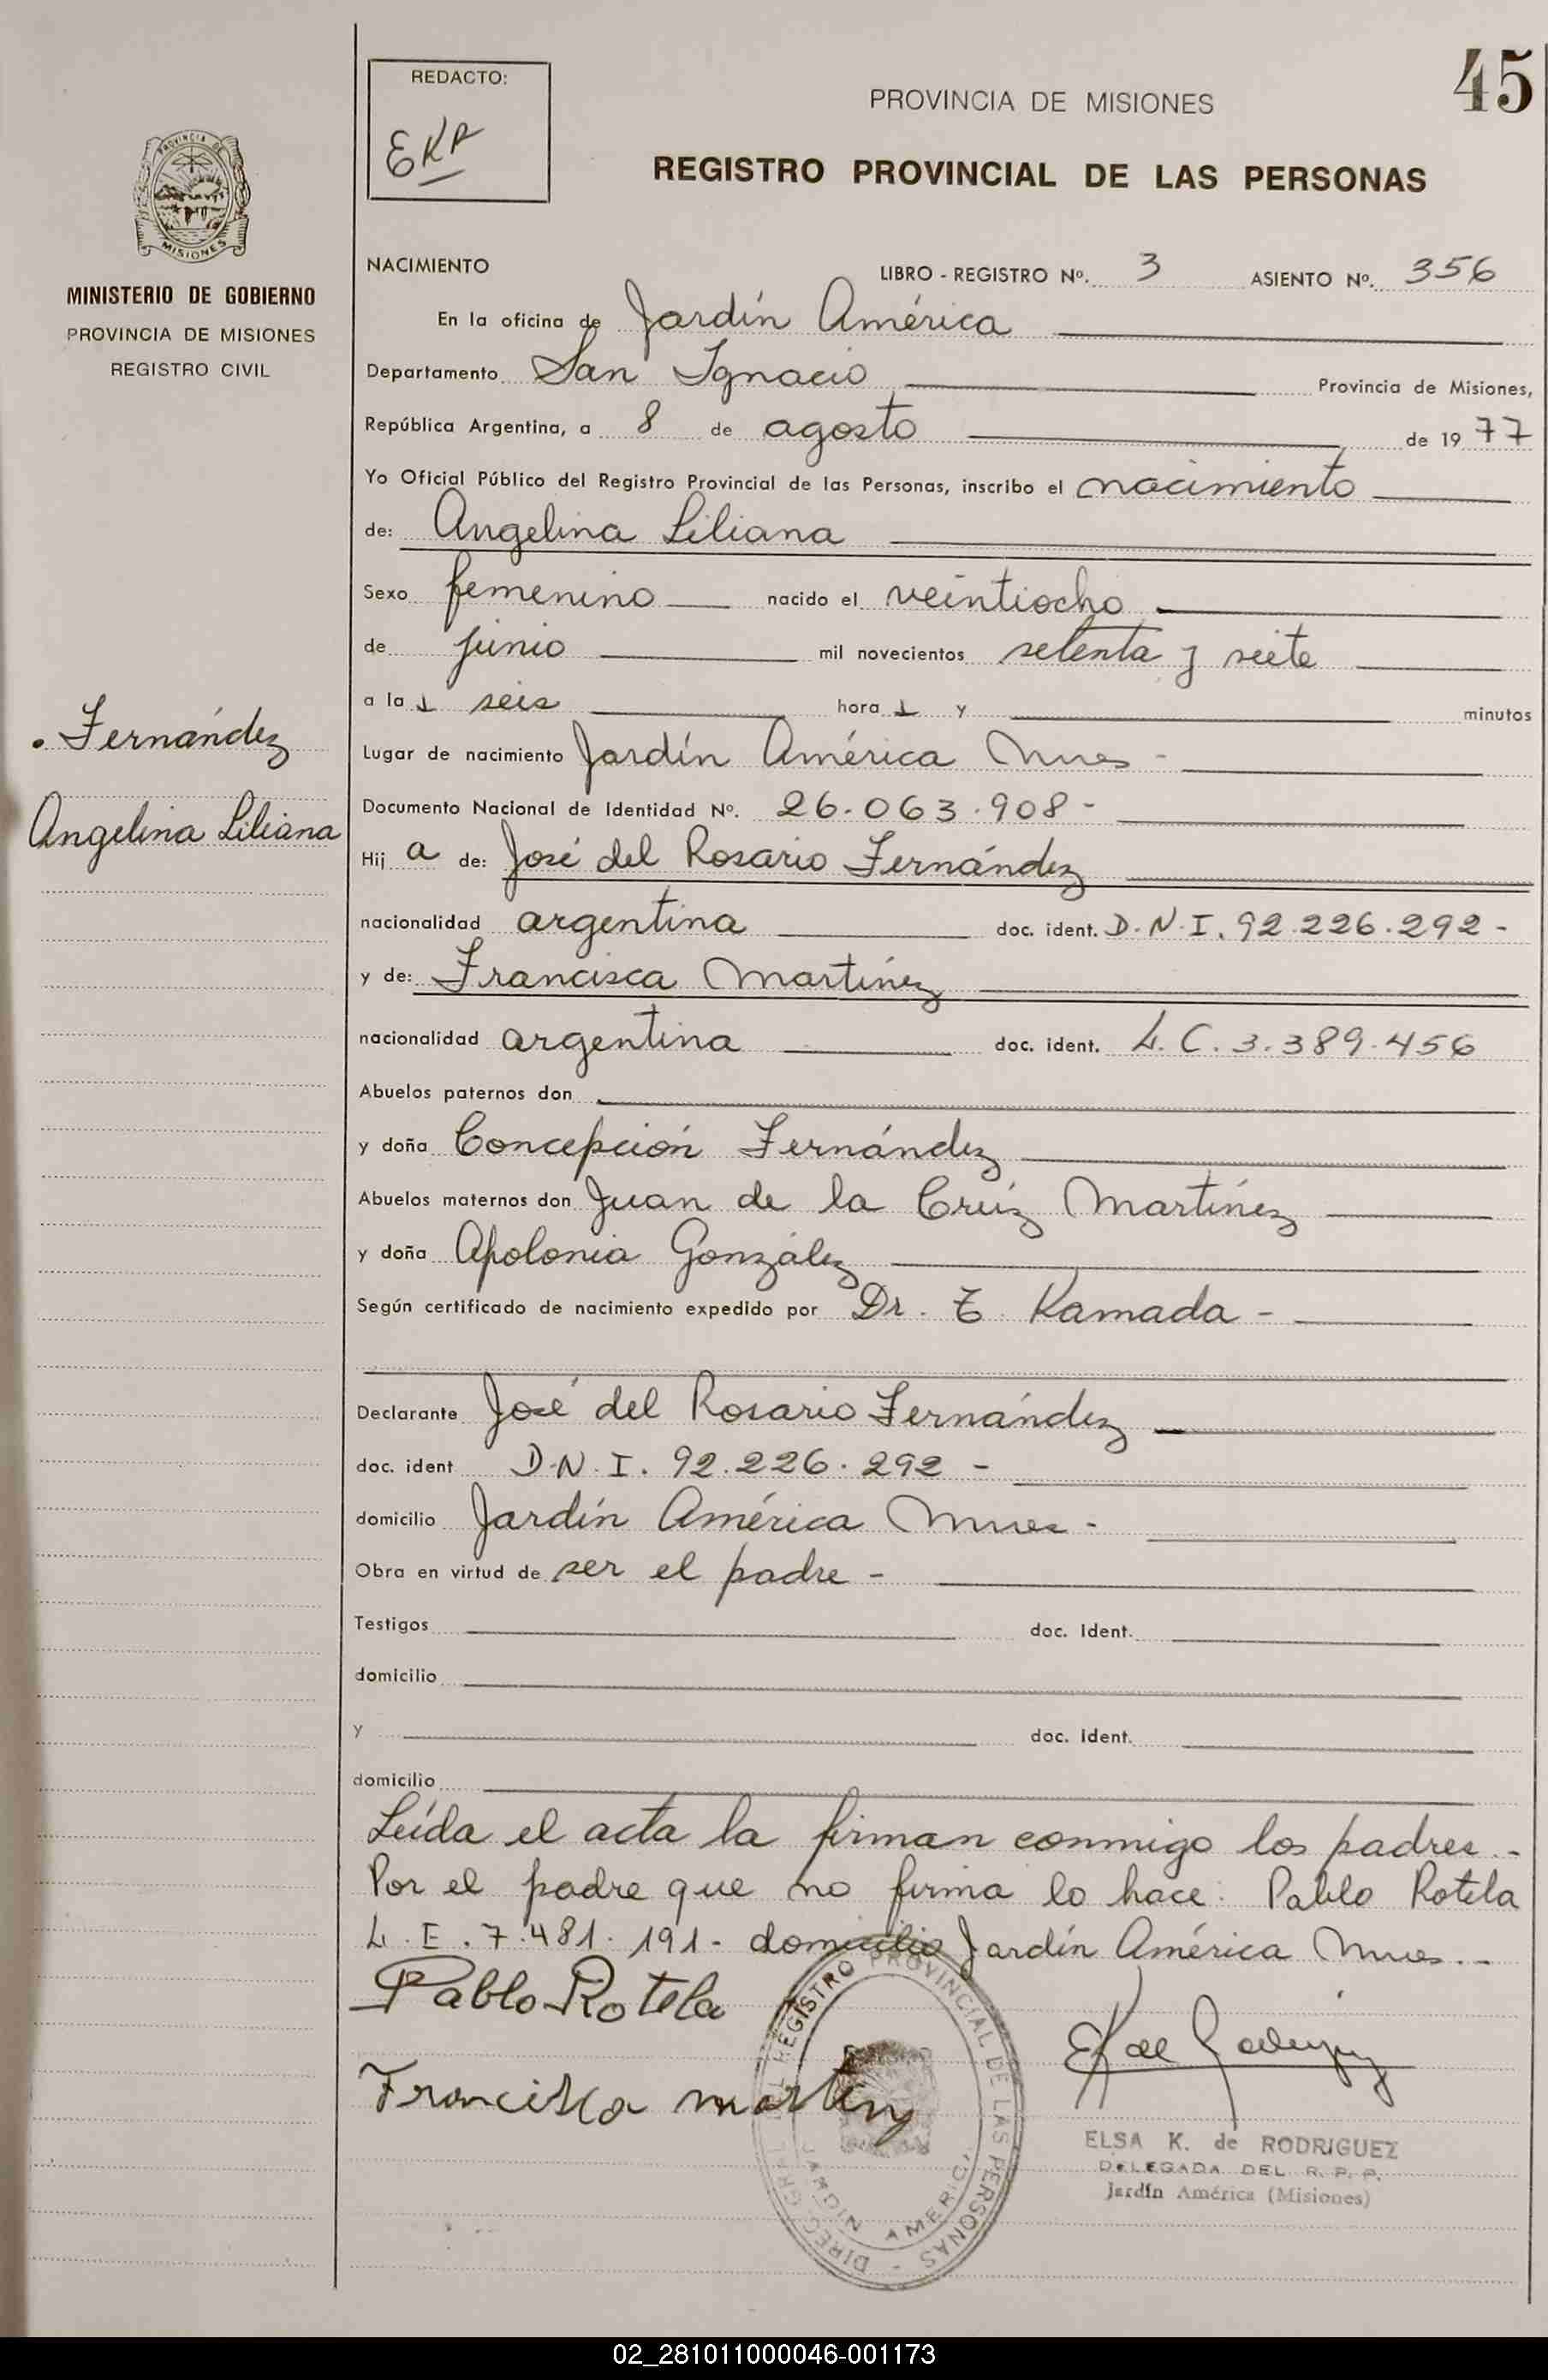 45
REDACTO:
EKR
PROVINCIA DE MISIONES
REGISTRO PROVINCIAL DE LAS PERSONAS
PROVINCIA DE
MISIONES
MINISTERIO DE GOBIERNO
PROVINCIA DE MISIONES
REGISTRO CIVIL
NACIMIENTO LIBRO - REGISTRO Nº. 3 ASIENTO Nº. 356
En la oficina de Jardín América
Departamento San Ignacio Provincia de Misiones,
República Argentina, a 8 de agosto de 1977
Yo Oficial Público del Registro Provincial de las Personas, inscribo el nacimiento
de: Angelina Liliana
Sexo femenino nacido el veintiocho
de junio mil novecientos setenta y siete
a la s seis hora s y minutos
Fernández
Angelina Liliana
Lugar de nacimiento Jardín América Mnes -
Documento Nacional de Identidad Nº. 26.063.908-
Hij a de: José del Rosario Fernández
nacionalidad argentina doc. ident. D.N.I. 92.226.292-
y de: Francisca Martínez
nacionalidad argentina doc. ident. L.C. 3.389.456
Abuelos paternos don
y doña Concepción Fernández
Abuelos maternos don Juan de la Cruz Martínez
y doña Apolonia González
Según certificado de nacimiento expedido por Dr. T. Kamada -
Declarante José del Rosario Fernández
doc. ident D.N.I. 92.226.292 -
domicilio Jardín América Mnes -
Obra en virtud de ser el padre -
Testigos doc. Ident.
domicilio
y doc. Ident.
domicilio
Leída el acta la firman conmigo los padres.-
Por el padre que no firma lo hace: Pablo Rotela
L.E. 7.481.191- domicilio Jardín América Mnes.-
Pablo Rotela
Francisca martinez
DIREC. GRAL. DEL REGISTRO PROVINCIAL DE LAS PERSONAS -
JARDIN AMERICA
ELSA K. de RODRIGUEZ
DELEGADA DEL R. P. P.
Jardín América (Misiones)
02_281011000046-001173